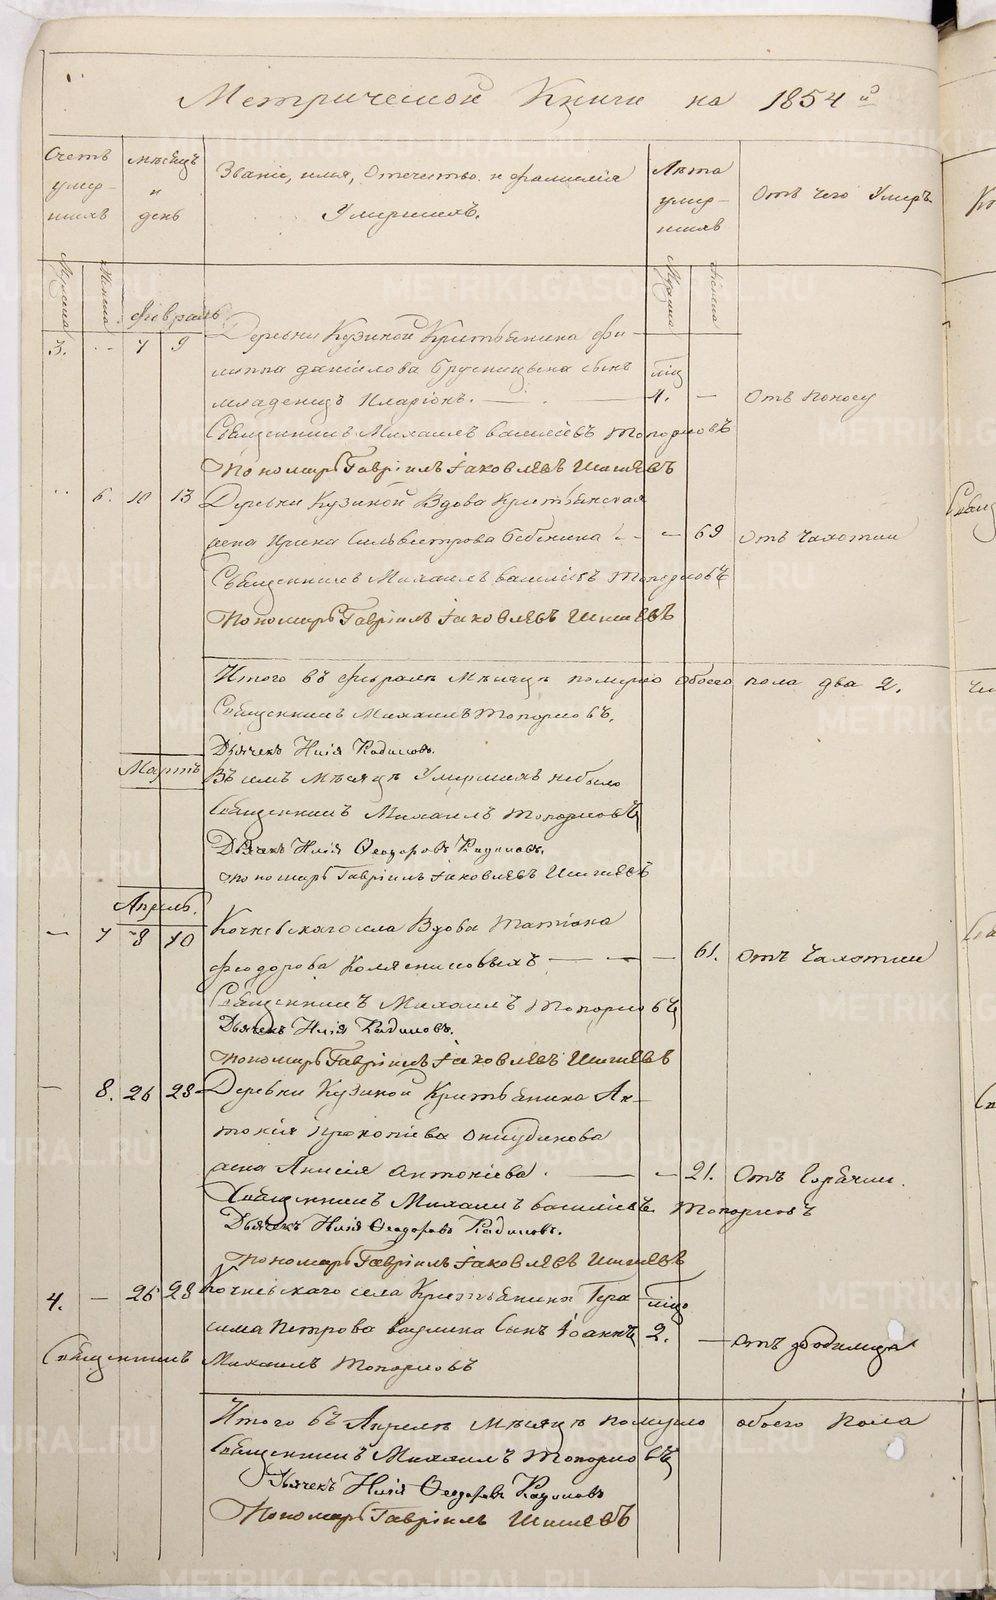 Метрической Книги на 1854 й
Счетъ умер-шихъ
мѣсяцъ и день
Званіе, имя, отечество и фамилія Умершихъ.
Лѣта умер-шихъ
Отъ чего Умеръ
Мужеска Женска
Мужска Женска
Февраль
3. -- 7 9 Деревни Кузиной Крестьянина Фи-
липпа Данилова Брусницына сынъ мѣс
младенецъ Иларіонъ. — 1. — Отъ поносу
Священникъ Михаилъ Василіевъ Топорковъ
Пономарь Гавріилъ Іаковлевъ Шишевъ
-- 6. 10 13 Деревни Кузиной Вдова Крестьянская
жена Ирина Сильвестрова — — 69 Отъ Чахотки
Священникъ Михаилъ Василіевъ Топорковъ
Пономарь Гавріилъ Іаковлевъ Шишевъ
Итого въ Февралѣ Мѣсяцѣ померло обоего пола два 2.
Священникъ Михаилъ Топорковъ.
Дьячекъ Илія Кадиковъ.
Мартъ
Въ семъ Мѣсяцѣ Умершихъ небыло
Священникъ Михаилъ Топорковъ
Дьячекъ Илія Ѳеодоровъ Кадиковъ.
Пономарь Гавріилъ Іаковлевъ Шишевъ
Апрель.
— 7 8 10 Кочневскаго села Вдова Татіана
Феодорова Колясниковыхъ — — — 61. Отъ Чахотки
Священникъ Михаилъ Топорковъ
Дьячекъ Илія Кадиковъ.
Пономарь Гавріилъ Іаковлевъ Шишевъ
— 8. 26 28 Деревни Кузиной Крестьянина Ан-
тонія Прокопіева
жена Анисія Антоніева. — — 21. Отъ Горячки.
Священникъ Михаилъ Василіевъ Топорковъ
Дьячекъ Илія Ѳеодоровъ Кадиковъ.
Пономарь Гавріилъ Іаковлевъ Шишевъ
4. — 26 28 Кочневскаго села Крестьянина Гера-
сима Петрова Ваулина Сынъ Іоаннъ 2. — Отъ
Священникъ Михаилъ Топорковъ
Итого въ Апрелѣ мѣсяцѣ померло обоего пола
Священникъ Михаилъ Топорковъ
Дьячекъ Илія Ѳеодоровъ Кадиковъ
Пономарь Гавріилъ Шишевъ
METRIKI.GASO-URAL.RU